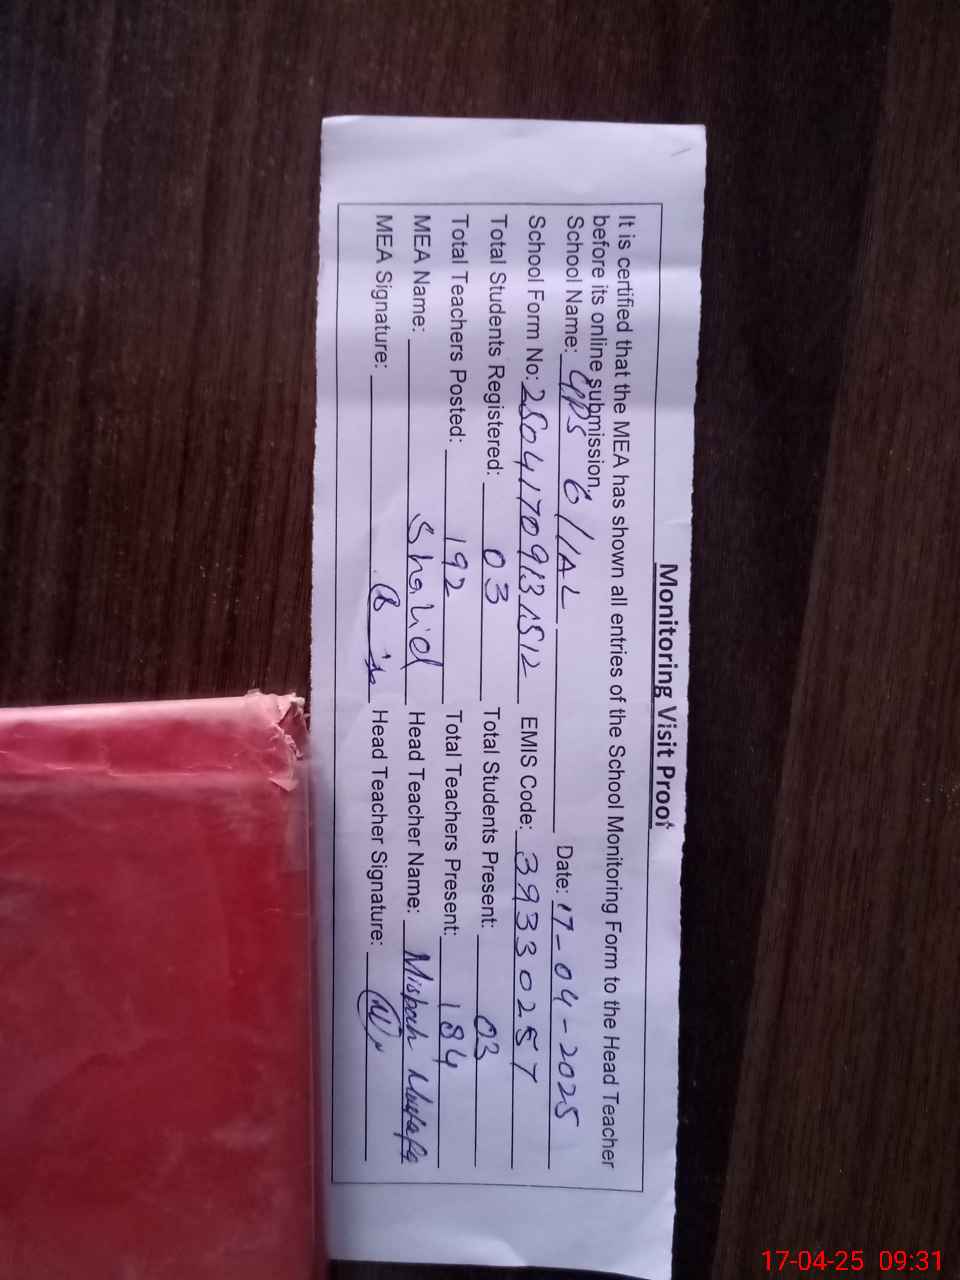 Monitoring Visit Proof
It is certified that the MEA has shown all entries of the School Monitoring Form to the Head Teacher
before its online submission.
School Name: GPS 6/1AL Date: 17-04-2025
School Form No: 25041709131512 EMIS Code: 39330257
Total Students Registered: 03 Total Students Present: 03
Total Teachers Posted: 192 Total Teachers Present: 184
MEA Name: Shahid Head Teacher Name: Misbah Mustafa
MEA Signature: Head Teacher Signature:
17-04-25 09:31